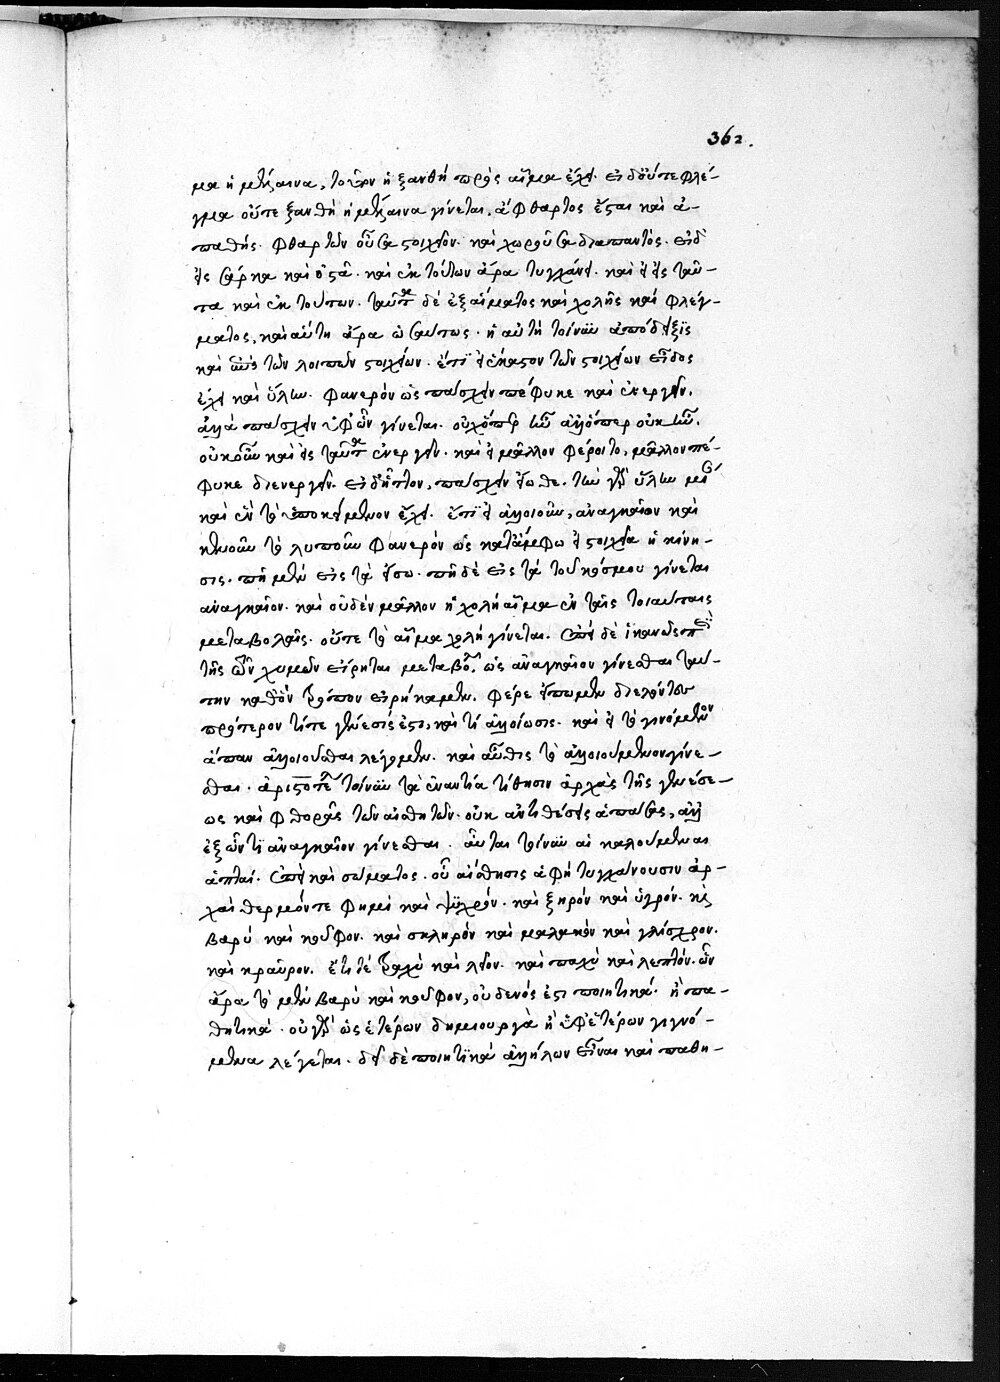 362.
μα ἢ μέλαινα, τοίνυν ἡ ξανθὴ πρὸς αἷμα ἔχει. εἰ δ' οὔτε φλέ-
γμα οὔτε ξανθὴ ἢ μέλαινα γίνεται, ἄφθαρτος ἔσται καὶ ἀ-
παθής. φθαρτῶν οὖσα στοιχεῖον. καὶ χωροῦσα διαπαντός. εἰ δ'
εἰς σάρκα καὶ ὀστᾶ. καὶ ἐκ τούτων ἄρα τυγχάνει. καὶ εἰ εἰς ταῦ-
τα καὶ ἐκ τούτων. ταῦτα δὲ ἐξ αἵματος καὶ χολῆς καὶ φλέγ-
ματος, καὶ αὕτη ἄρα ὡσαύτως. ἡ αὐτὴ τοίνυν ἀπόδειξις
καὶ τῶν λοιπῶν στοιχείων. ἔτι εἰ ἕκαστον τῶν στοιχείων εἶδος
ἔχει καὶ ὕλην. φανερὸν ὡς πάσχειν πέφυκε καὶ ἐνεργεῖν.
ἀλλὰ πάσχειν ὑφ' ὧν γίνεται. οὐχ ὅπερ ἦν ἀλλ' ὅπερ οὐκ ἦν.
οὐκοῦν καὶ εἰς ταῦτα ἐνεργεῖν. καὶ εἰ μᾶλλον φέροιτο, μᾶλλον πέ-
φυκε διενεργεῖν. εἰ δ' ἧττον, πάσχειν εἴωθε. τὴν γὰρ ὕλην
καὶ ἐν τὸ ὑποκείμενον ἔχει. ἔτι εἰ ἀλλοιοῦν, ἀναγκαῖον καὶ
κινοῦν τὸ λυποῦν φανερὸν ὡς κατ' ἄμφω εἰ στοιχεῖα ἡ κίνη-
σις. πῆ μὲν εἰς τὰ εἴσω. πῆ δὲ εἰς τὰ τοῦ κόσμου γίνεται
ἀναγκαῖον. καὶ οὐδὲν μᾶλλον ἡ χολὴ αἷμα ἐν ταῖς τοιαύταις
μεταβολαῖς. οὔτε τὸ αἷμα χολὴ γίνεται. ἐπεὶ δὲ ἱκανῶς περὶ
τῆς τῶν χυμῶν εἴρηται μεταβολῆς, ὡς ἀναγκαῖον γίνεσθαι ταύ-
την καθ' ὃν τρόπον εἰρήκαμεν. φέρε εἴπωμεν διελόντες
πρότερον τί τε γένεσίς ἐστι, καὶ τί ἀλλοίωσις. καὶ εἰ τὸ γινόμενον
ἅπαν ἀλλοιοῦσθαι λέγομεν. καὶ αὖθις τὸ ἀλλοιούμενον γίνε-
σθαι. ἀριστοτέλης τοίνυν τὰ ἐναντία τίθησιν ἀρχὰς τῆς γενέσε-
ως καὶ φθορᾶς τῶν αἰσθητῶν. οὐκ ἀντιθέσεις ἁπάσας, ἀλλ'
ἐξ ὧν τι ἀναγκαῖον γίνεσθαι. αὗται τοίνυν αἱ καλούμεναι
ἁπταί. ἐπεὶ καὶ σώματος. οὗ αἴσθησις ἁφὴ τυγχάνουσιν ἀρ-
χαὶ θερμόν τε φημὶ καὶ ψυχρόν. καὶ ξηρὸν καὶ ὑγρόν. καὶ
βαρὺ καὶ κοῦφον. καὶ σκληρὸν καὶ μαλακὸν καὶ γλίσχρον.
καὶ κραῦρον. ἔτι τὲ τραχὺ καὶ λεῖον. καὶ παχὺ καὶ λεπτόν. ὧν
ἄρα τὸ μὲν βαρὺ καὶ κοῦφον, οὐδενός ἐστι ποιητικά. ἢ πα-
θητικά. οὐ γὰρ ὡς ἑτέρων δημιουργὰ ἢ ἐφ' ἑτέρων γιγνό-
μενα λέγεται. δεῖ δὲ ποιητικὰ ἀλλήλων εἶναι καὶ παθη-